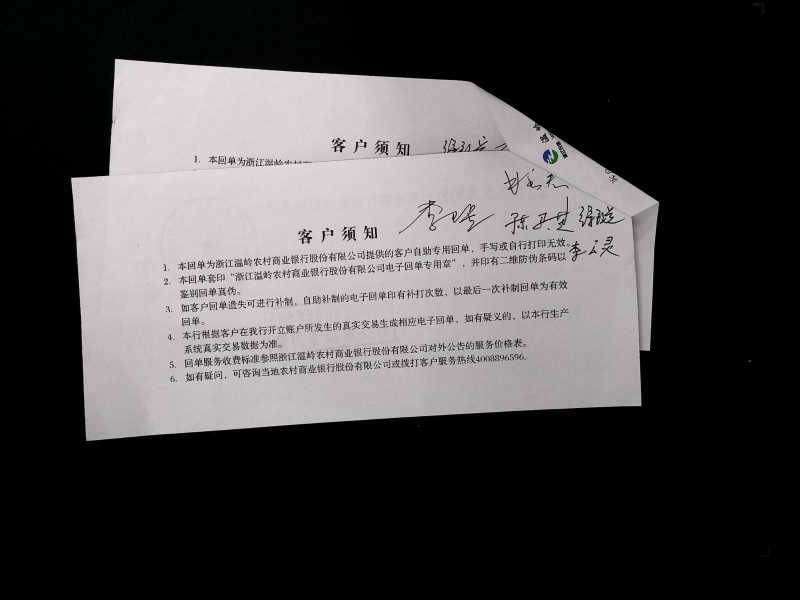 客户须知
1. 本回单为浙江温岭农村
客户须知
1. 本回单为浙江温岭农村商业银行股份有限公司提供的客户自助专用回单，手写或自行打印无效。
2. 本回单套印“浙江温岭农村商业银行股份有限公司电子回单专用章”，并印有二维防伪条码以
鉴别回单真伪。
3. 如客户回单遗失可进行补制。自助补制的电子回单印有补打次数，以最后一次补制回单为有效
回单。
4. 本行根据客户在我行开立账户所发生的真实交易生成相应电子回单，如有疑义的，以本行生产
系统真实交易数据为准。
5. 回单服务收费标准参照浙江温岭农村商业银行股份有限公司对外公告的服务价格表。
6. 如有疑问，可咨询当地农村商业银行股份有限公司或拨打客户服务热线4008896596.